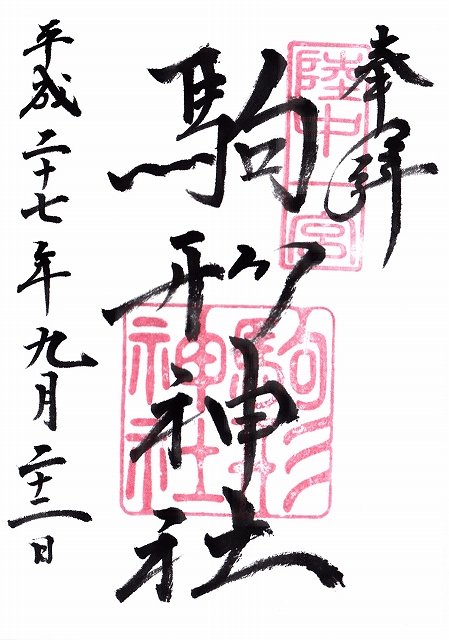 奉拝
陸中一宮
駒形神社
駒形神社
平成二十七年九月二十二日